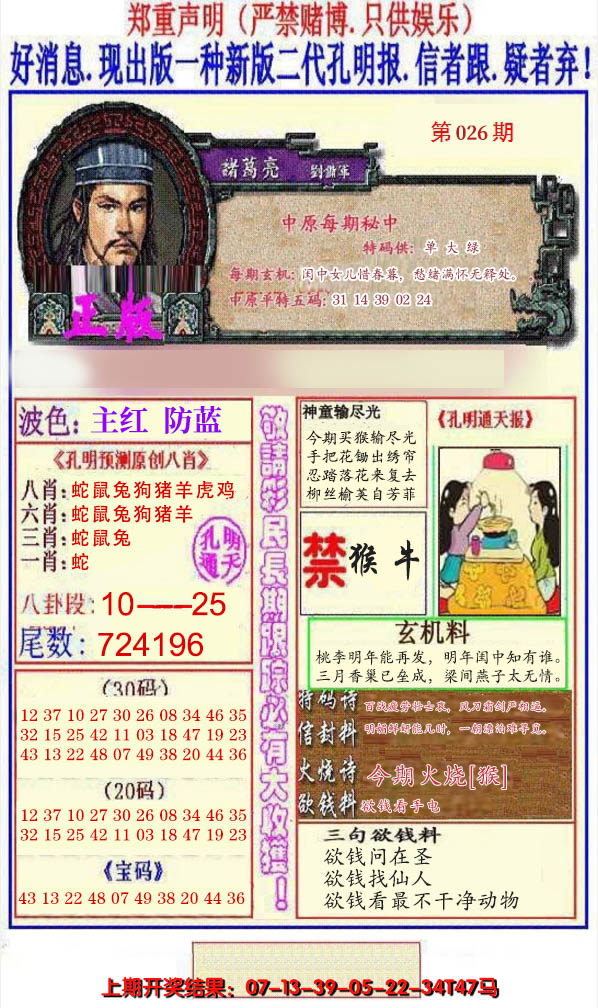 郑重声明（严禁赌博.只供娱乐）
好消息.现出版一种新版二代孔明报.信者跟.疑者弃！
第026期
諸葛亮 劉備軍
中原每期秘中
特码供：单 大 绿
每期玄机：闺中女儿惜春暮，愁绪满怀无释处。
中原平特五码：31 14 39 02 24
正版
波色：主红 防蓝
《孔明预测原创八肖》
八肖：蛇鼠兔狗猪羊虎鸡
六肖：蛇鼠兔狗猪羊
三肖：蛇鼠兔
一肖：蛇
孔明通天
八卦段：10——25
尾数：724196
（30码）
12 37 10 27 30 26 08 34 46 35
32 15 25 42 11 03 18 47 19 23
43 13 22 48 07 49 38 20 44 36
（20码）
12 37 10 27 30 26 08 34 46 35
32 15 25 42 11 03 18 47 19 23
《宝码》
43 13 22 48 07 49 38 20 44 36
敬請彩民長期跟踪必有大收獲！
神童输尽光
今期买猴输尽光
手把花锄出绣帘
忍踏落花来复去
柳丝榆荚自芳菲
《孔明通天报》
禁 猴 牛
玄机料
桃李明年能再发，明年闺中知有谁。
三月香巢已垒成，梁间燕子太无情。
特码诗 百战疲劳壮士哀，风刀霜剑严相逼。
信封料 明媚鲜妍能几时，一朝漂泊难寻觅。
火烧诗 今期火烧[猴]
欲钱料 欲钱看手电
三句欲钱料
欲钱问在圣
欲钱找仙人
欲钱看最不干净动物
上期开奖结果：07-13-39-05-22-34T47马